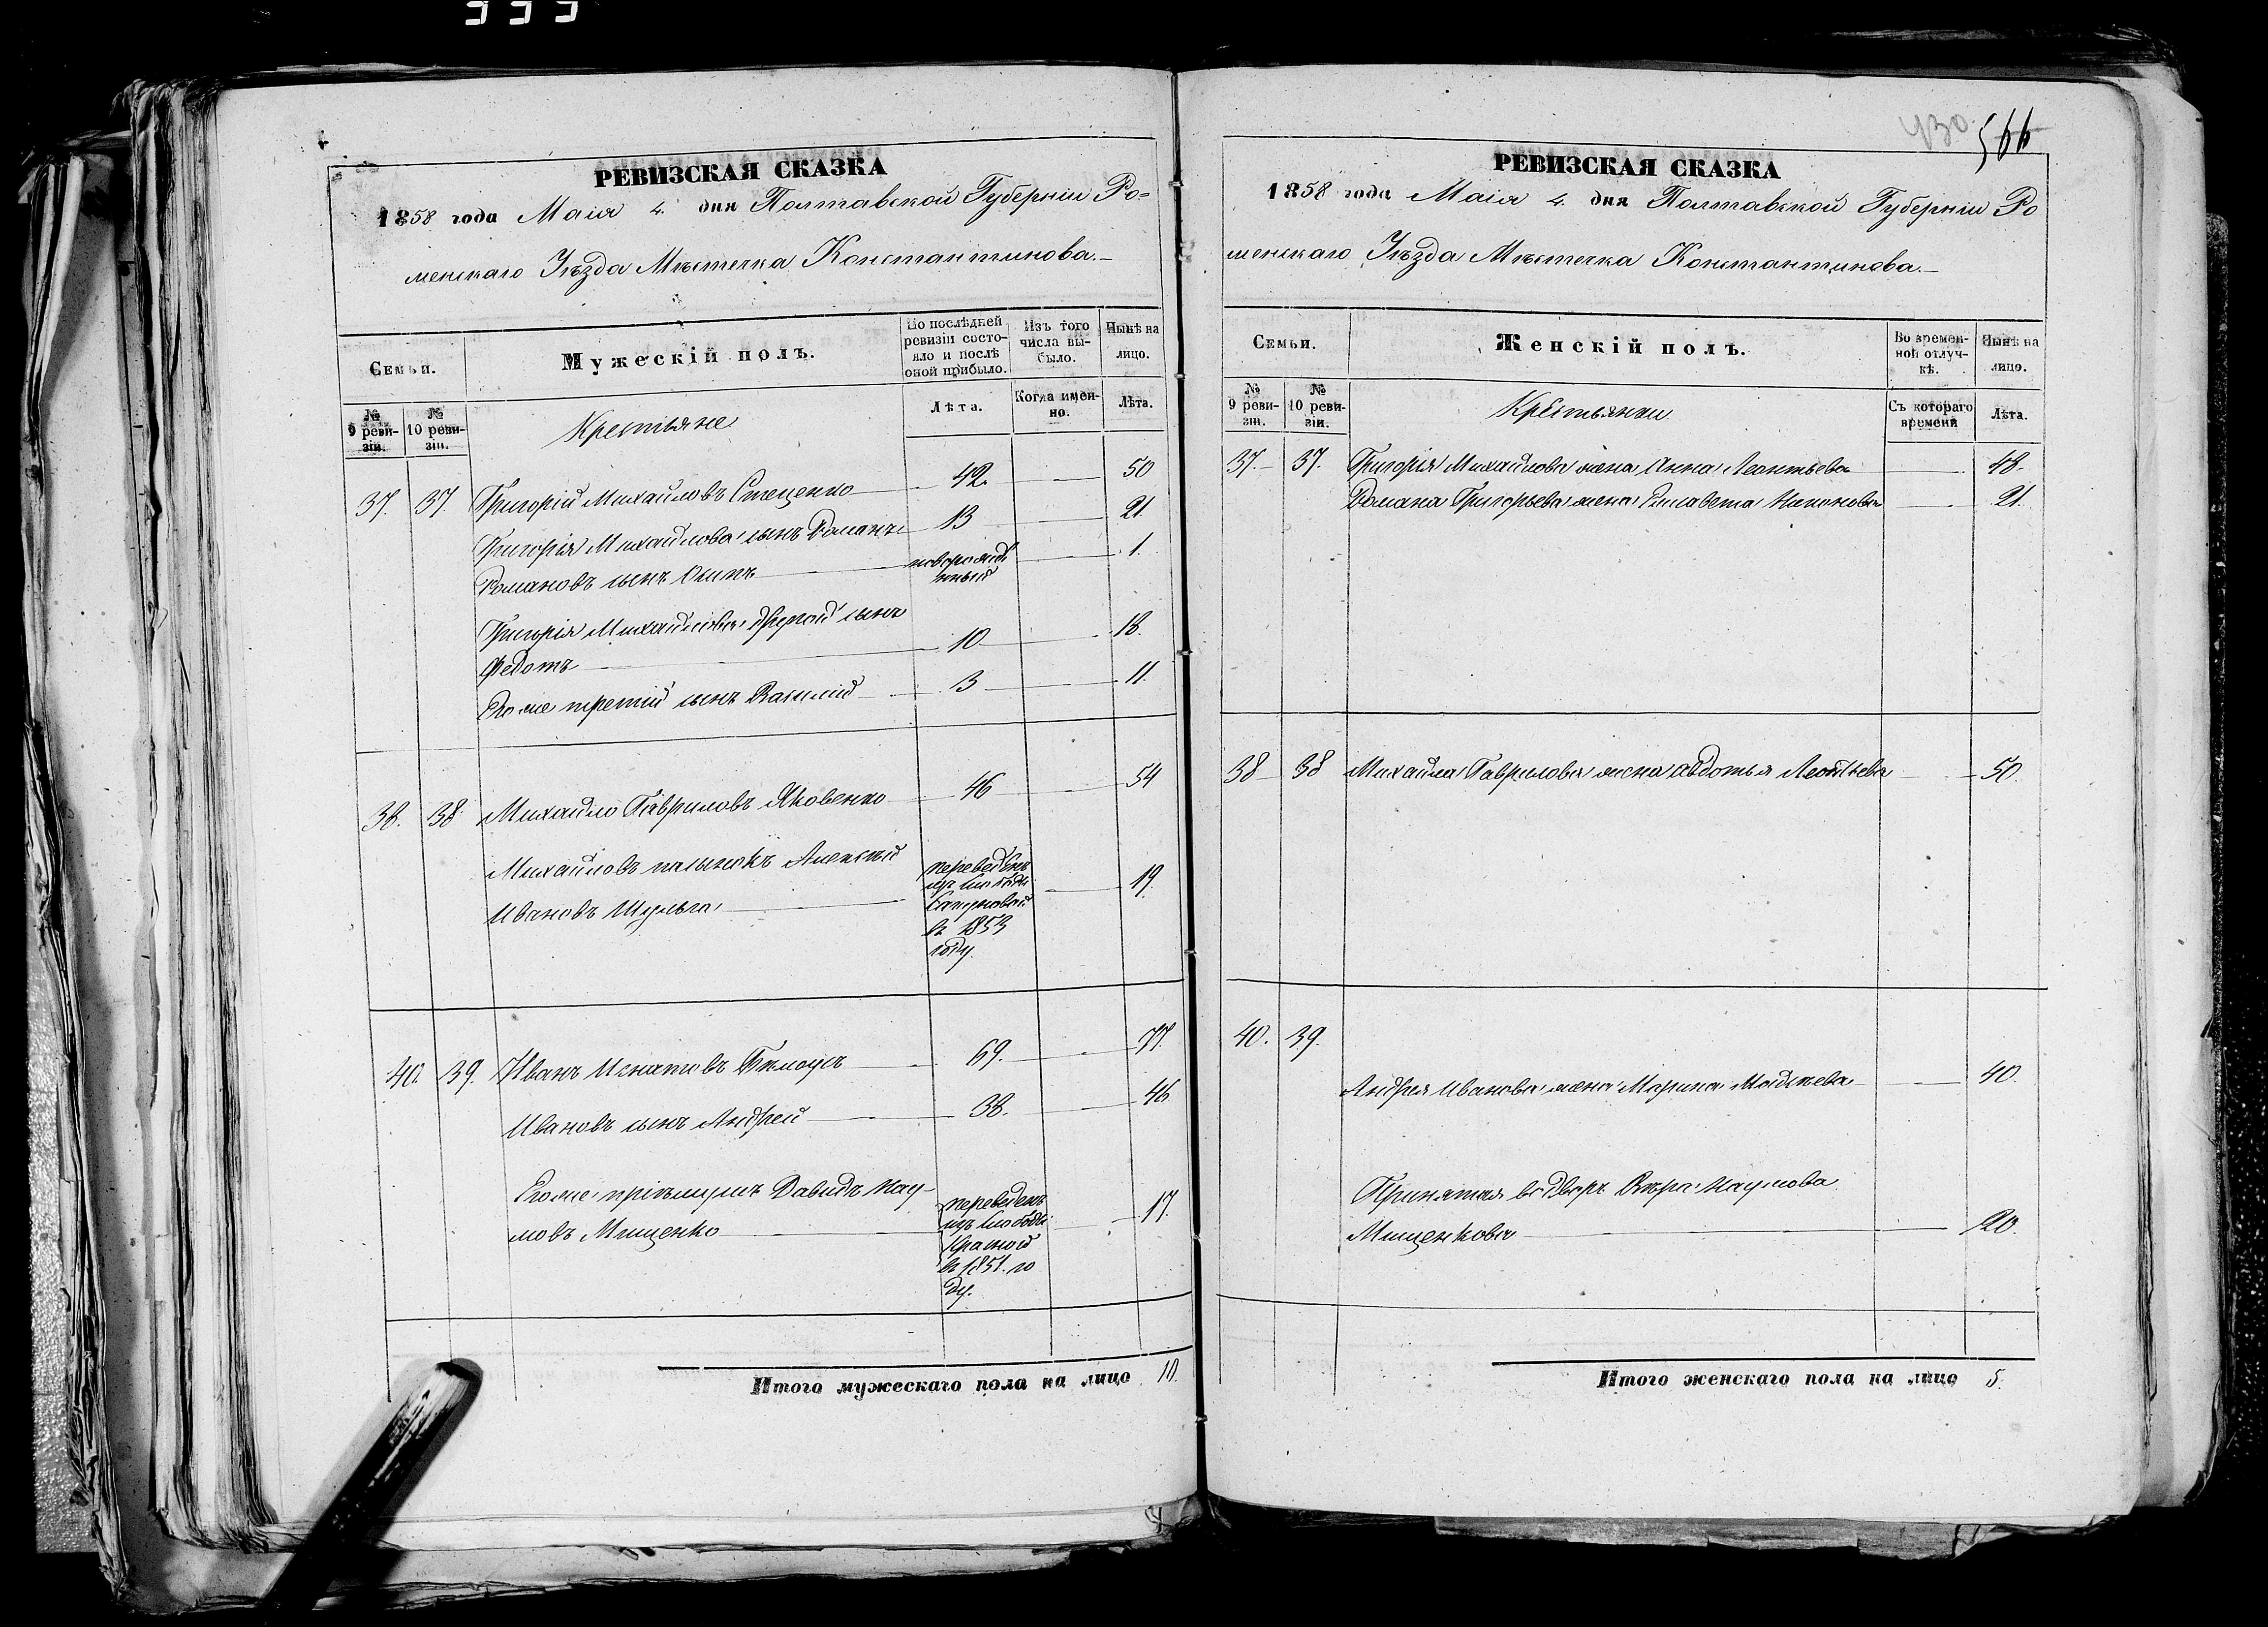 РЕВИЗСКАЯ СКАЗКА
1858 года Маія 4. дня Полтавской Губерніи Ро=
менскаго Уѣзда Мѣстечка Константинова.
Семьи.
Мужескій полъ.
По послѣдней ревизіи состояло и послѣ оной прибыло.
Изъ того числа выбыло.
Нынѣ на лицо.
№ 9 ревизіи.
№ 10 ревизіи.
Крестьяне
Лѣта.
Когда именно.
Лѣта.
37. 37. Григорій Михайловъ Стеценко 42. 50
Григорія Михайлова сынъ Романъ 13 21
Романовъ сынъ Осипъ новорожденный 1.
Григорія Михайлова другой сынъ
Федотъ 10 18.
Его же третій сынъ Василій 3 11.
38. 38 Михайло Гавриловъ Яковенко 46 54
Михайловъ Алексѣй
Ивановъ Шульга переведенъ изъ слободы въ 1853 году. 19.
40. 39. Иванъ Игнатовъ 69. 77.
Ивановъ сынъ Андрей 38. 46
Его же пріемышъ Давидъ Нау-
мовъ Мищенко переведенъ изъ слободы Красной въ 1851. году. 17.
Итого мужескаго пола на лицо 10.
430
566
РЕВИЗСКАЯ СКАЗКА
1858 года Маія 4. дня Полтавской Губерніи Ро
менскаго Уѣзда Мѣстечка Константинова.
Семьи.
Женскій полъ.
Во временной отлучкѣ.
Нынѣ на лицо.
№ 9 ревизіи.
№ 10 ревизіи.
Крестьянки
Съ котораго времени
Лѣта.
37. 37. Григорія Михайлова жена Анна Леонтьева 48.
Романа Григорьева жена Елисавета 21.
38 38 Михайла Гаврилова жена Авдотья Леонтьева 50.
40. 39.
Андрея Иванова жена Марина 40.
Принятая во дворъ Вѣра Наумова
Мищенкова 20.
Итого женскаго пола на лицо 5.